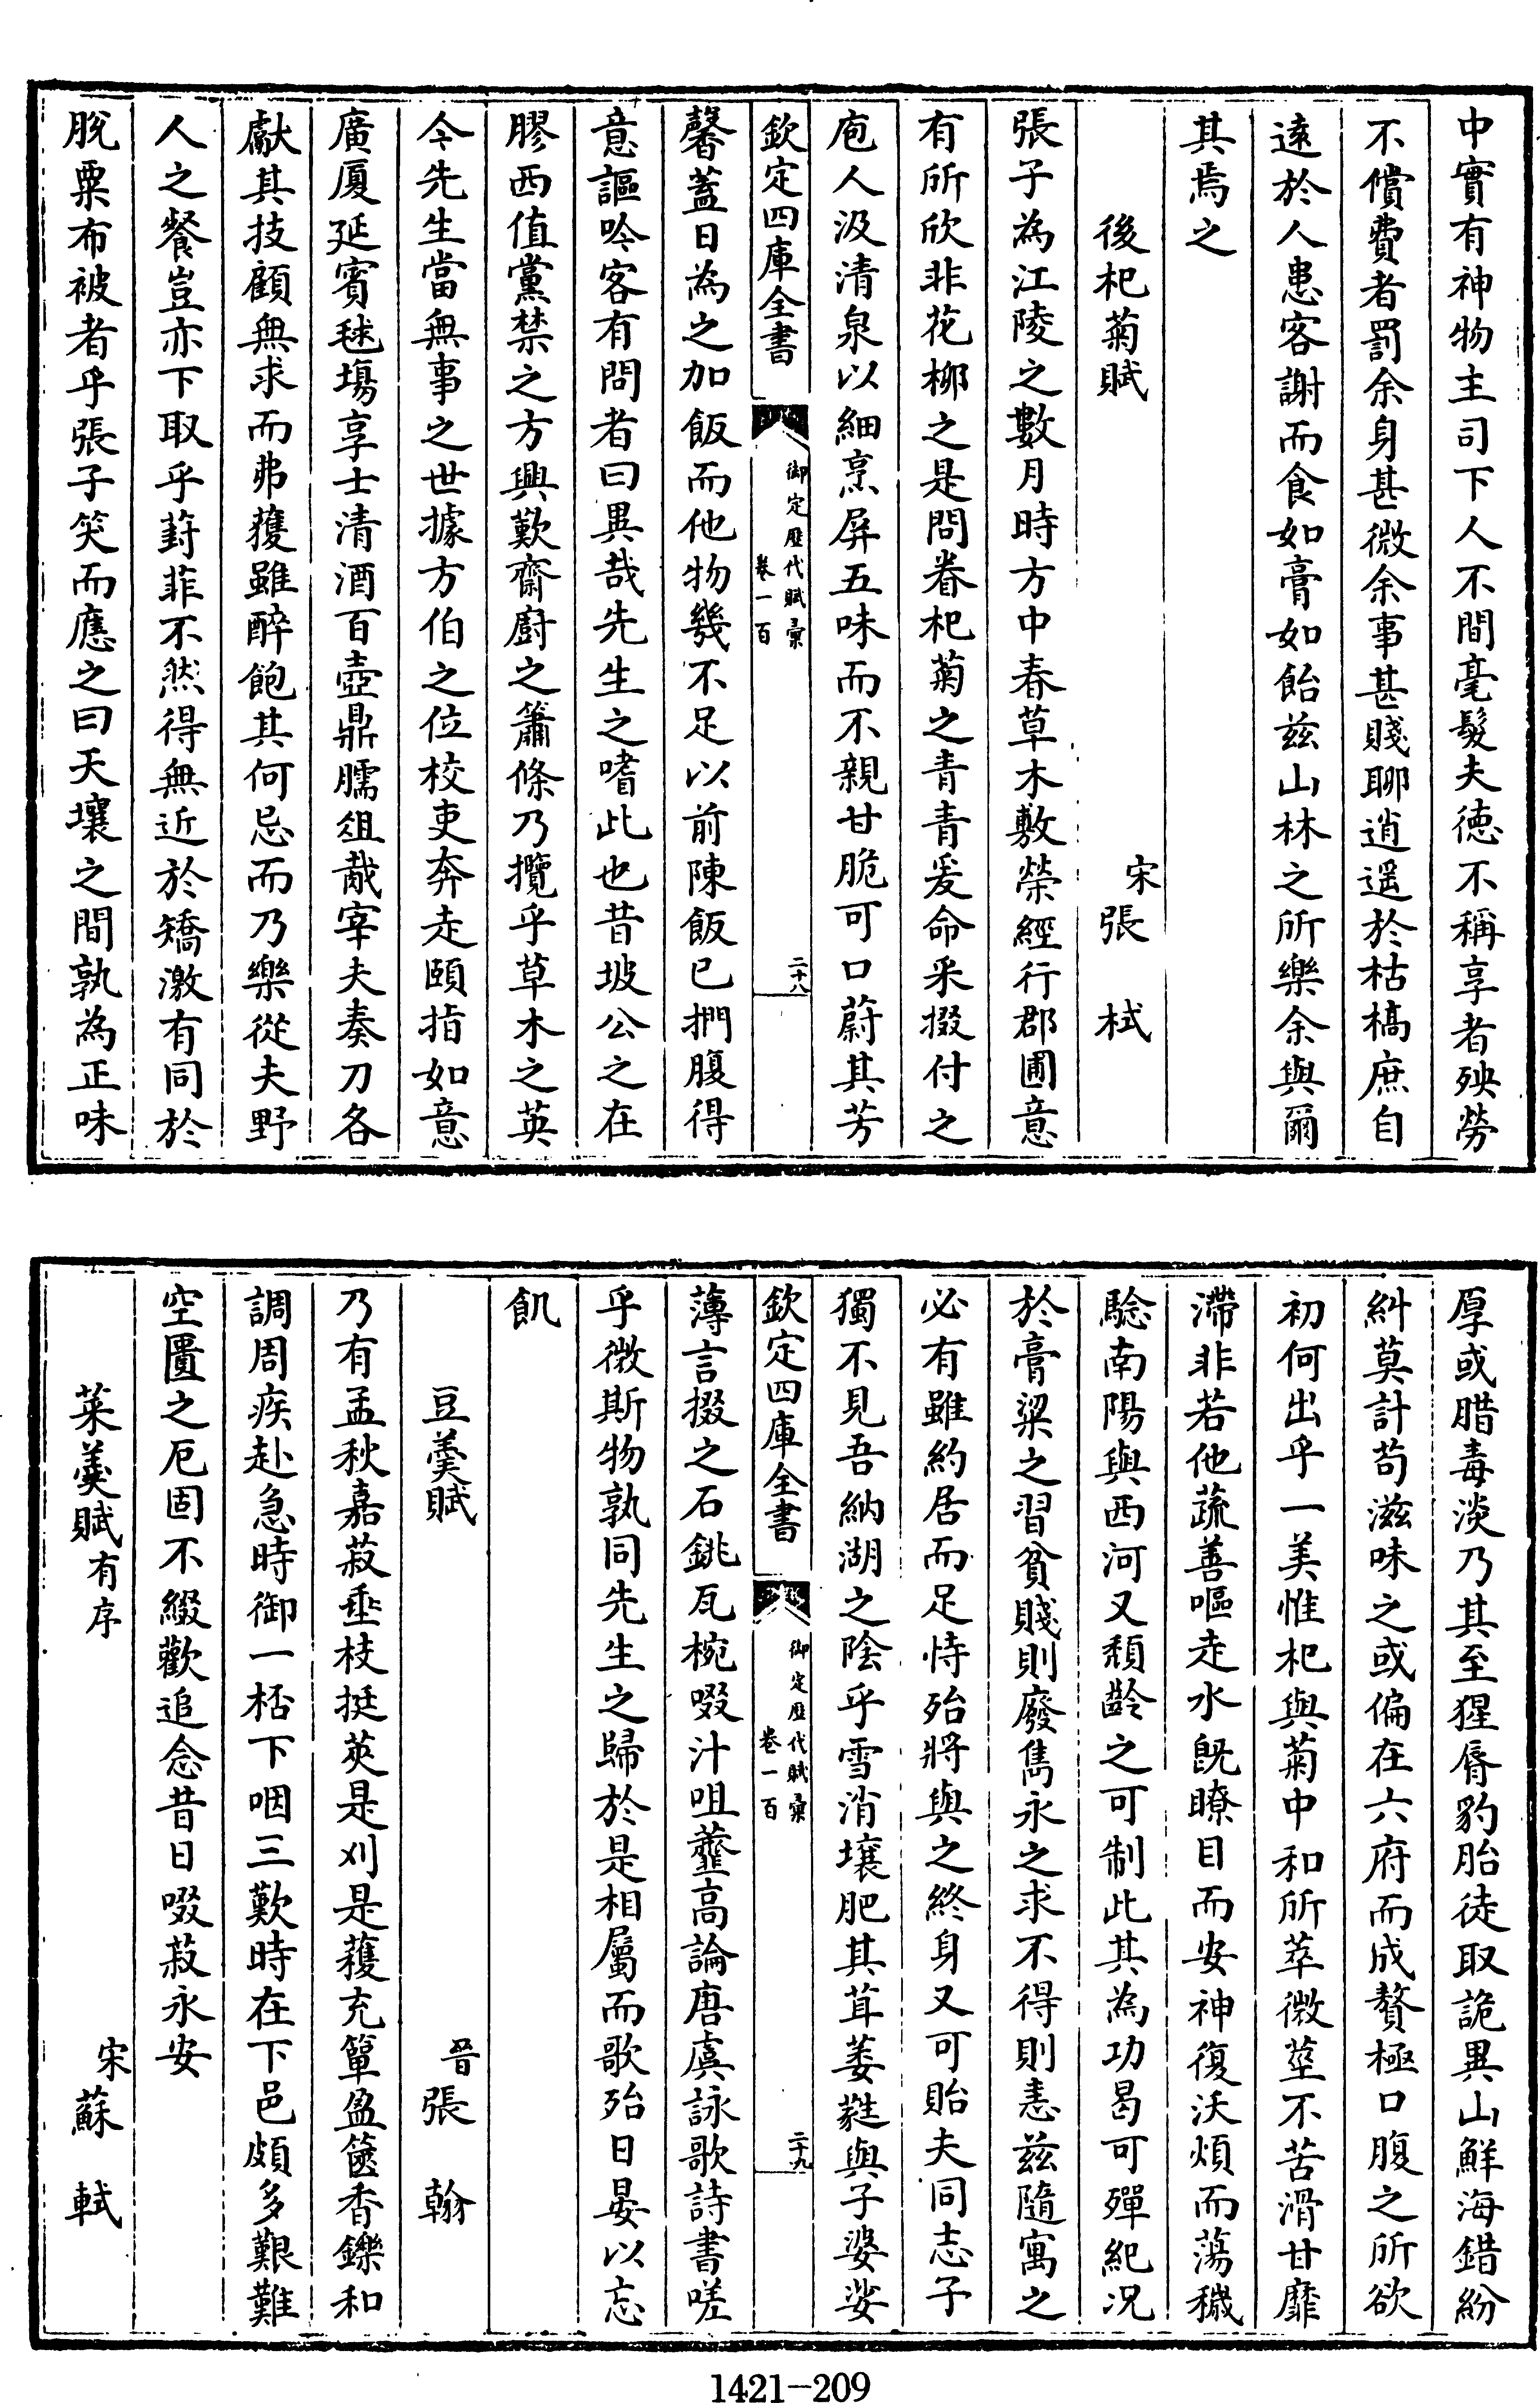 中實有神物主司下人不間毫髮夫徳不稱享者殃勞
不償費者罰余身甚微余事甚賤聊逍遥於枯槁庶自
逺於人患客謝而食如膏如飴兹山林之所樂余與爾
其焉之
後杞菊賦
宋張栻
張子為江陵之數月時方中春草木敷榮經行郡圃意
有所欣非花柳之是問眷杞菊之青青爰命采掇付之
庖人汲清泉以細烹屏五味而不親甘脆可口蔚其芳
欽定四庫全書
御定歴代賦彚
卷一百
二十八
馨蓋日為之加飯而他物幾不足以前陳飯已捫腹得
意謳吟客有問者曰異哉先生之嗜此也昔坡公之在
膠西值黨禁之方興歎齋廚之蕭條乃攬乎草木之英
今先生當無事之世據方伯之位校吏奔走頤指如意
廣厦延賓毬場享士清酒百壺鼎臑俎胾宰夫奏刀各
獻其技顧無求而弗獲雖醉飽其何忌而乃樂從夫野
人之餐豈亦下取乎葑菲不然得無近於矯激有同於
脫粟布被者乎張子笑而應之曰天壤之間孰為正味
厚或腊毒淡乃其至猩脣豹胎徒取詭異山鮮海錯紛
糾莫計苟滋味之或偏在六府而成贅極口腹之所欲
初何出乎一美惟杞與菊中和所萃微莖不苦滑甘靡
滯非若他蔬善嘔走水旣瞭目而安神復沃煩而蕩穢
驗南陽與西河又頽齡之可制此其為功曷可殫紀况
於膏粱之習貧賤則廢雋永之求不得則恚兹隨寓之
必有雖約居而足恃殆將與之終身又可貽夫同志子
獨不見吾納湖之陰乎雪消壤肥其茸萎蕤與子婆娑
欽定四庫全書
御定歴代賦彚
卷一百
二十九
薄言掇之石銚瓦椀啜汁咀虀高論唐虞詠歌詩書嗟
乎微斯物孰同先生之歸於是相屬而歌殆日晏以忘
飢
豆羮賦
晉張翰
乃有孟秋嘉菽垂枝挺莢是刈是穫充簞盈篋香鑠和
調周疾赴急時御一桮下咽三歎時在下邑頗多艱難
空匱之厄固不綴歡追念昔日啜菽永安
菜羮賦有序
宋蘇軾
1421-209